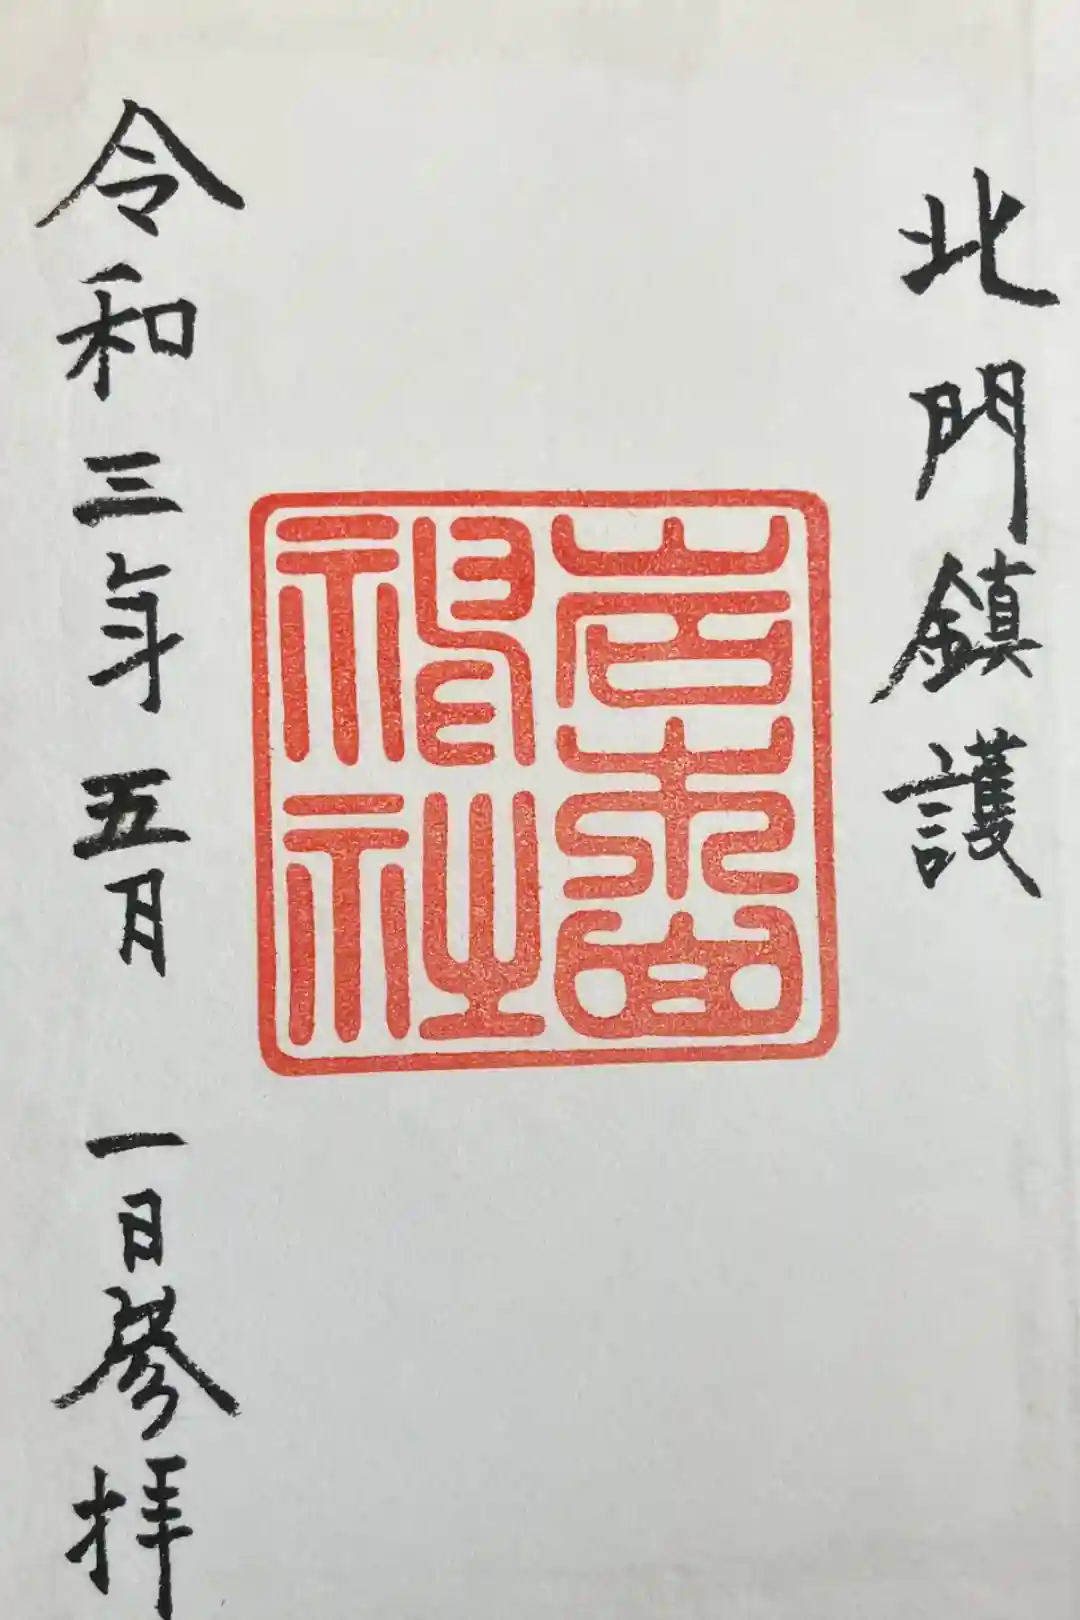 北門鎮護
岩木山
神社
令和三年五月一日參拝